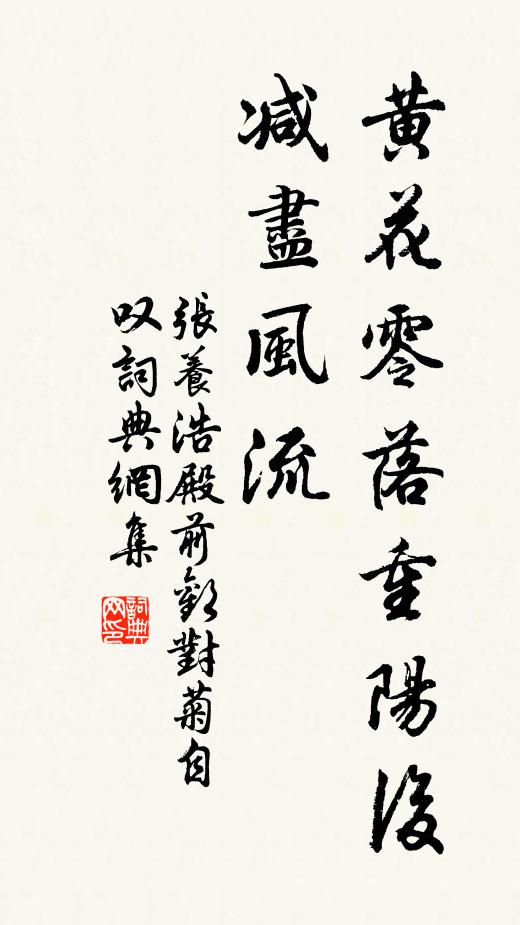 黃花零落重陽後
減盡風流
張養浩殿前歡對菊自
叹詞典網集
詞典网印